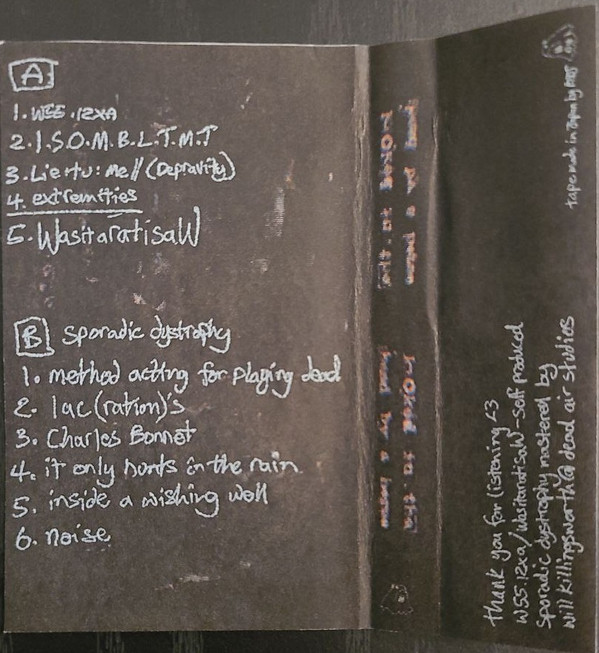 A
1. W55.12XA
2. I.S.O.M.B.L.T.M.T
3. Liertu:me//(Depravity)
4. extremities
5. WasitaratisaW
B sporadic dystrophy
1. method acting for playing dead
2. lac(ration)'s
3. Charles Bonnet
4. it only hurts in the rain
5. inside a wishing well
6. noise
kicked in the
head by a horse
kicked in the
head by a horse
thank you for listening <3
W55.12xa/WasitaratisaW - self produced
sporadic dystrophy mastered by
will killingsworth @ dead air studios
tape made in Japan by